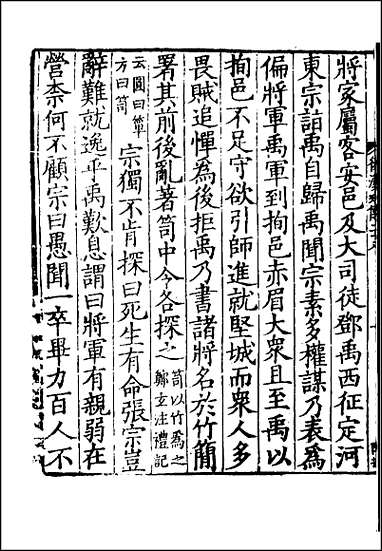 將家屬客安邑及大司徒鄧禹西征定河
東宗詣禹自歸禹聞宗素多權謀乃表爲
偏將軍禹軍到栒邑赤眉大衆且至禹以
栒邑不足守欲引師進就堅城而衆人多
畏賊追憚爲後拒禹乃書諸將名於竹簡
署其前後亂著笥中令各探之笥以竹爲之鄭玄注禮記
云圓曰簞方曰笥宗獨不肯探曰死生有命張宗豈
辭難就逸乎禹歎息謂曰將軍有親弱在
營柰何不顧宗曰愚聞一卒畢力百人不